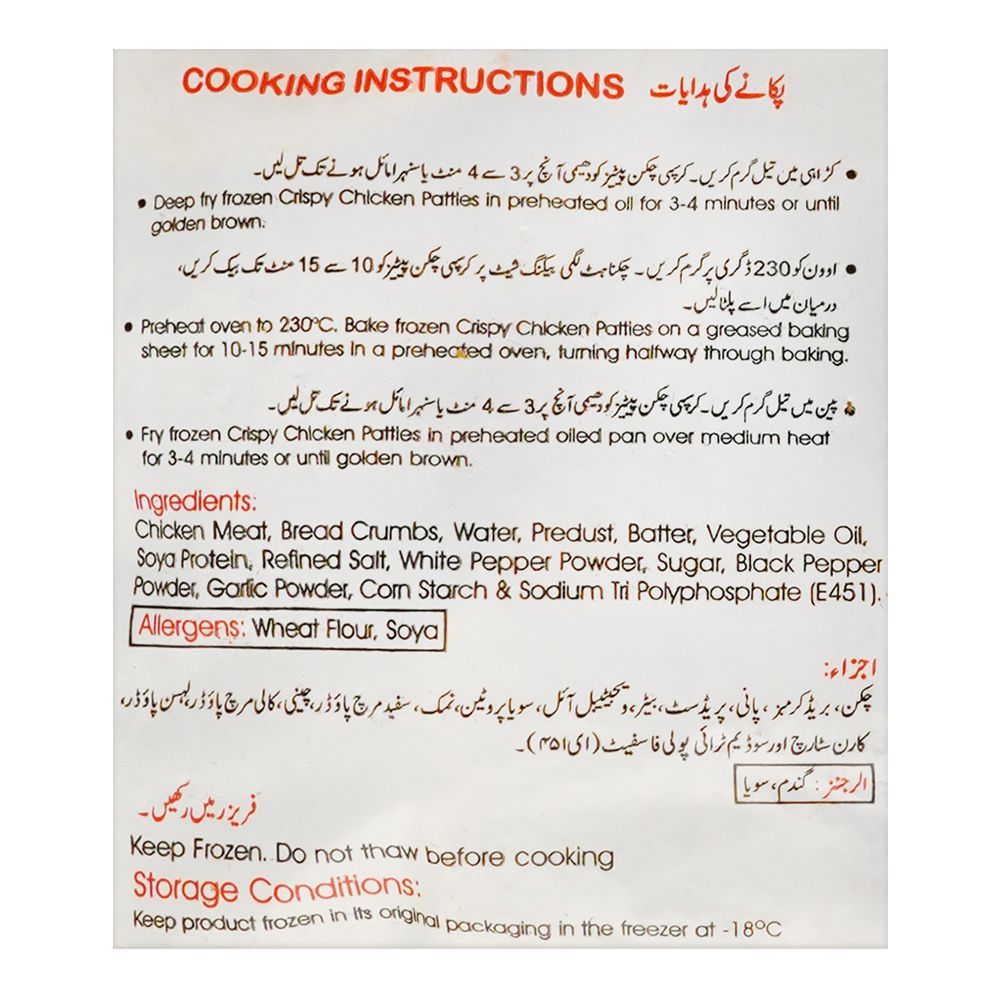 COOKING INSTRUCTIONS پکانے کی ہدایات
• کڑاہی میں تیل گرم کریں۔ کرسپی چکن پیٹیز کو دھیمی آنچ پر 3 سے 4 منٹ یا سنہرا مائل ہونے تک تل لیں۔
• Deep fry frozen Crispy Chicken Patties in preheated oil for 3-4 minutes or until
golden brown.
• اوون کو 230 ڈگری پر گرم کریں۔ چکناہٹ لگی بیکنگ شیٹ پر کرسپی چکن پیٹیز کو 10 سے 15 منٹ تک بیک کریں،
درمیان میں اسے پلٹا لیں۔
• Preheat oven to 230°C. Bake frozen Crispy Chicken Patties on a greased baking
sheet for 10-15 minutes in a preheated oven, turning halfway through baking.
• پین میں تیل گرم کریں۔ کرسپی چکن پیٹیز کو دھیمی آنچ پر 3 سے 4 منٹ یا سنہرا مائل ہونے تک تل لیں۔
• Fry frozen Crispy Chicken Patties in preheated oiled pan over medium heat
for 3-4 minutes or until golden brown.
Ingredients:
Chicken Meat, Bread Crumbs, Water, Predust, Batter, Vegetable Oil,
Soya Protein, Refined Salt, White Pepper Powder, Sugar, Black Pepper
Powder, Garlic Powder, Corn Starch & Sodium Tri Polyphosphate (E451).
Allergens: Wheat Flour, Soya
اجزاء:
چکن، بریڈ کرمبز، پانی، پریڈسٹ، بیٹر، ویجیٹیبل آئل، سویا پروٹین، نمک، سفید مرچ پاؤڈر، چینی، کالی مرچ پاؤڈر، لہسن پاؤڈر،
کارن سٹارچ اور سوڈیم ٹرائی پولی فاسفیٹ (ای ۴۵۱)۔
الرجنز: گندم، سویا
فریزر میں رکھیں۔
Keep Frozen. Do not thaw before cooking
Storage Conditions:
Keep product frozen in its original packaging in the freezer at -18°C